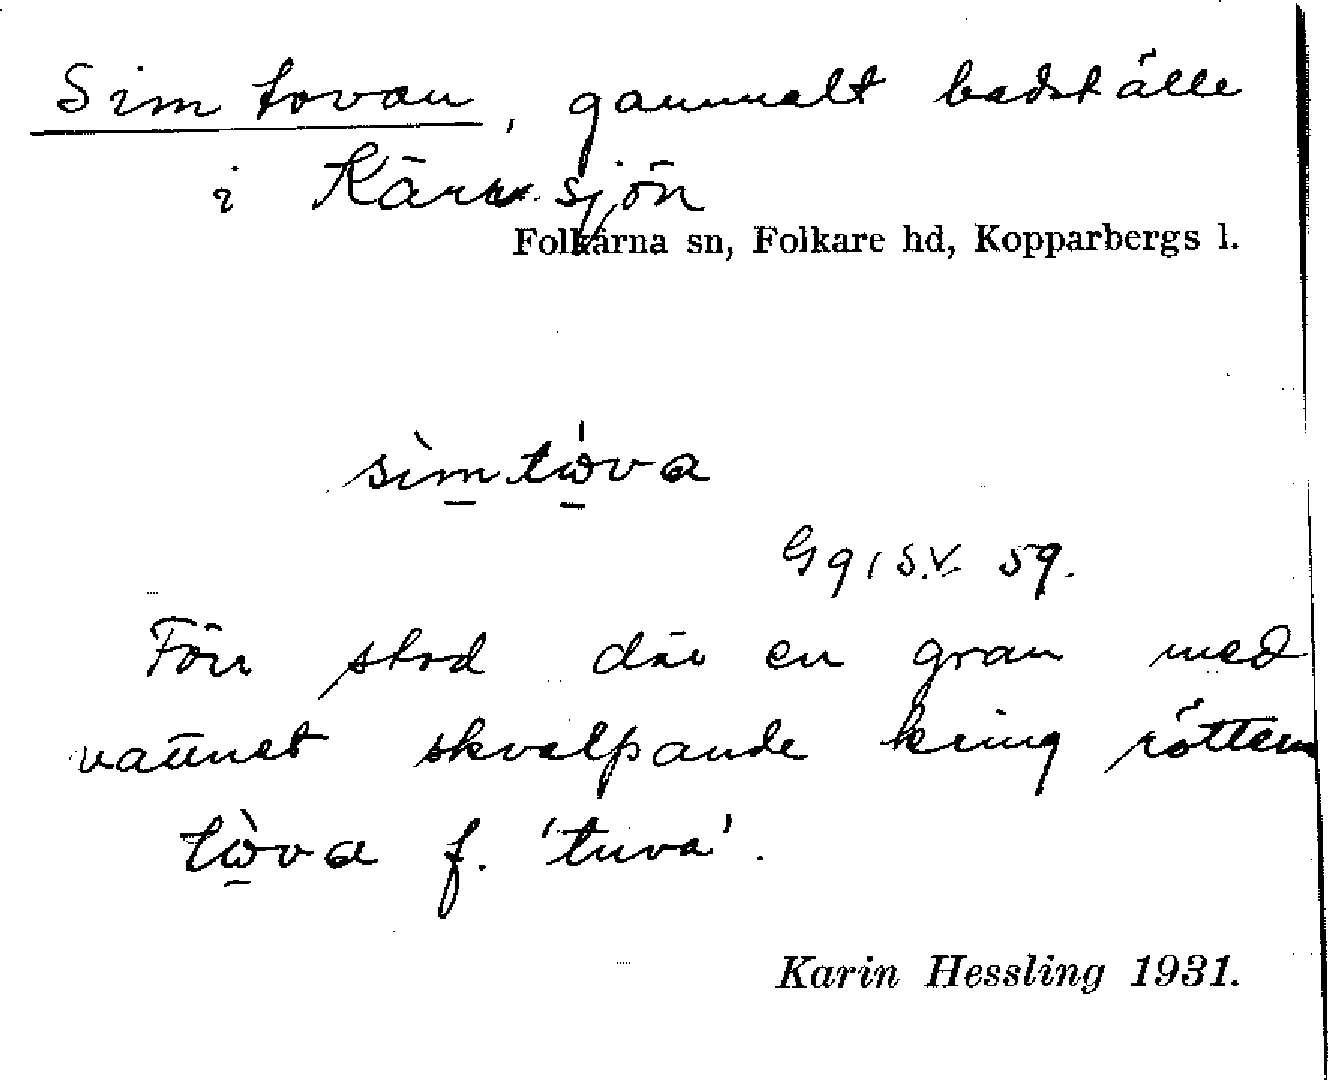 Simtovan, gammalt badställe
i Kärrsjön
Folkärna sn, Folkare hd, Kopparbergs l.
sìmtὼva
Gg 1 S.V. 59.
Förr stod där en gran med
vattnet skvalpande kring rötterna
tὼva f. 'tuva'.
Karin Hessling 1931.